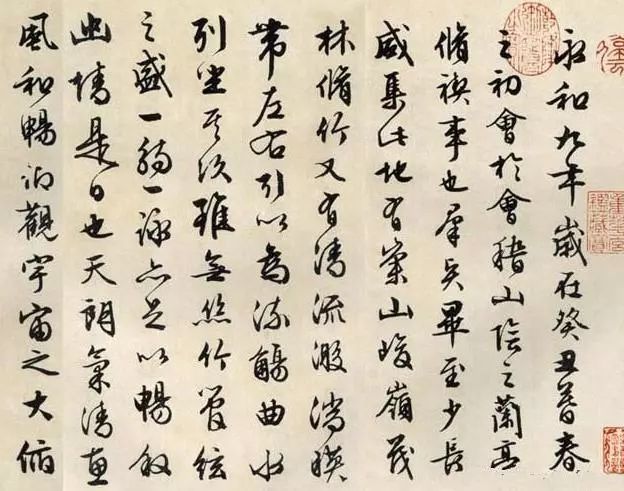 永和九年歲在癸丑暮春
之初會於會稽山陰之蘭亭
脩禊事也羣賢畢至少長
咸集此地有崇山峻嶺茂
林脩竹又有清流激湍暎
帶左右引以為流觴曲水
列坐其次雖無絲竹管絃
之盛一觴一詠亦足以暢叙
幽情是日也天朗氣清惠
風和暢仰觀宇宙之大俯